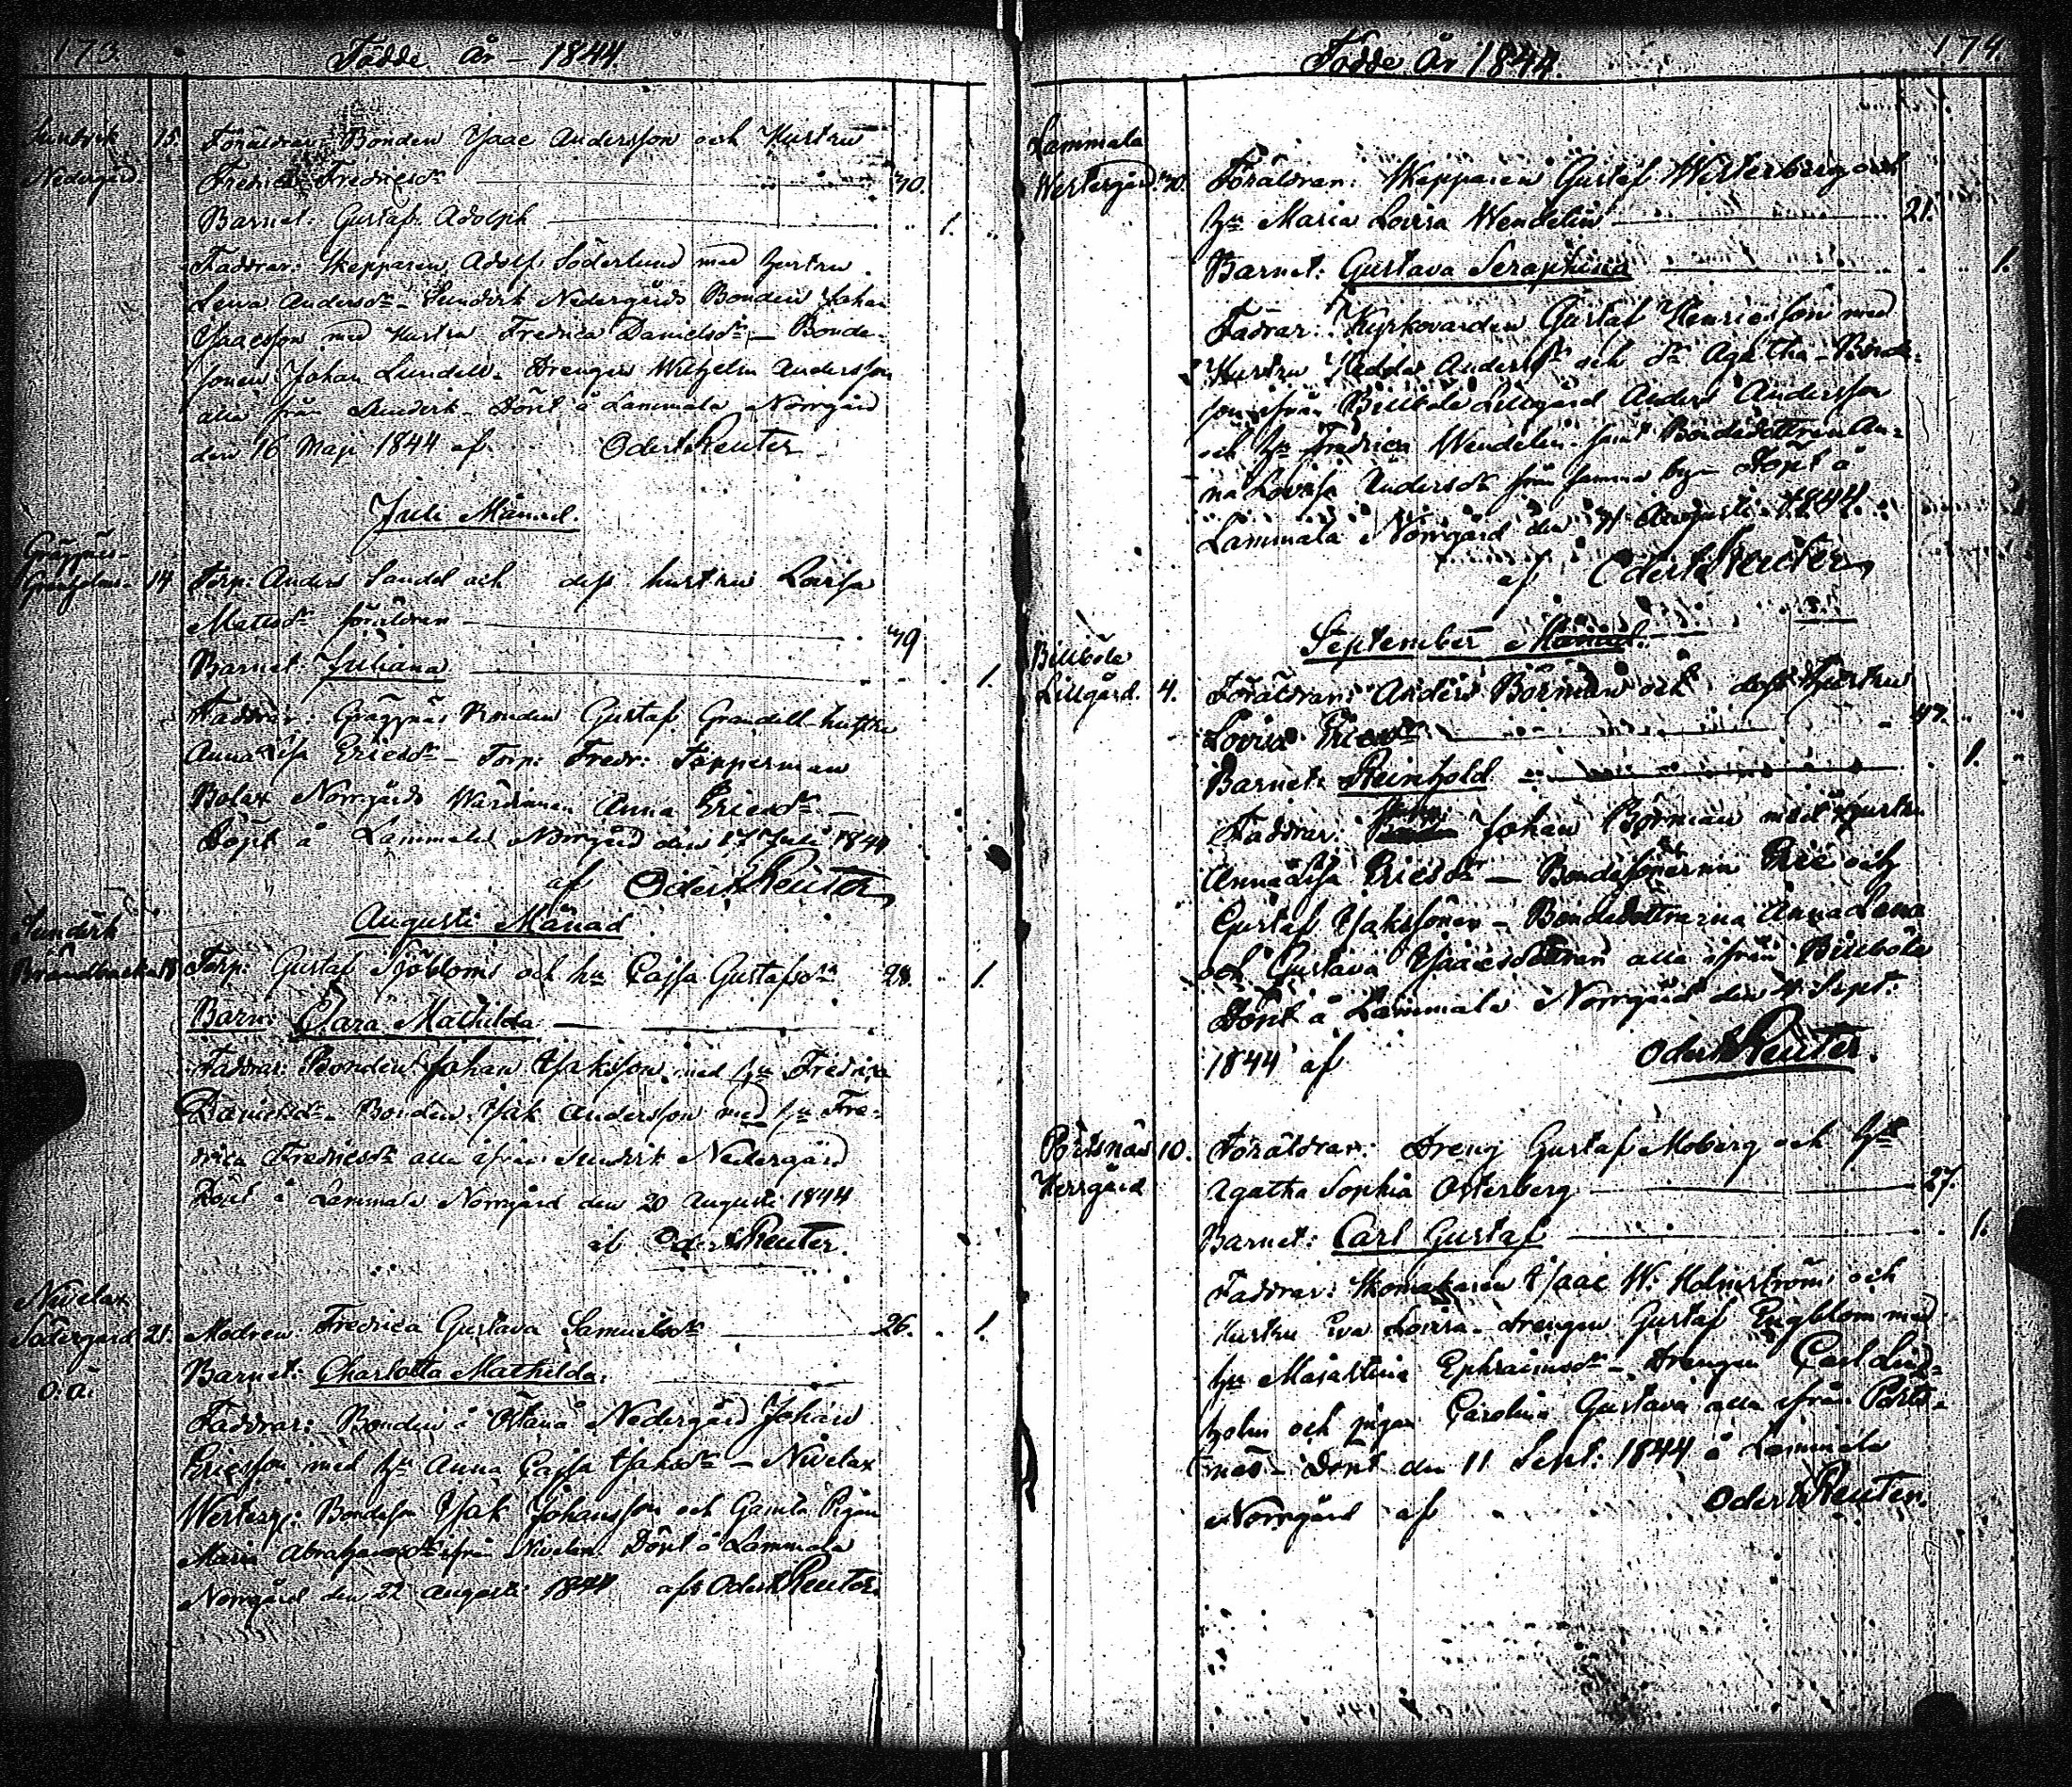 173.
Födde År – 1844.
Sundvik 15. Föräldrar: Bonden Isaac Andersson och Hustru
Nedergård Fredrica Fredricsdr 40.
Barnet: Gustaf Adolph 1.
Faddrar: Skepparen Adolf Söderlund med hustru
Lena Andersdr – Sundvik Nedergårds Bonden Johan
Isaacsson med Hustru Fredrica Danielsdr – Bonde-
sonen Johan Lundell. Drengen Wilhelm Andersson
alla från Sundvik. Döpt å Lammala Norrgård
den 16 Maji 1844 af Odert Reuter
Juli Månad.
Gräggnäs-
14. Torp: Anders Sandel och dess hustru Lovisa
Mattsdr föräldrar 39
Barnet Juliana 1.
Faddrar: Gräggnäs Bonden Gustaf Grandell hustru
Anna Lisa Ericsdr – Torp: Fredr: Tapperman
Bolax Norrgårds Värdinnan Anna Ericsdr –
Döpt å Lammala Norrgård den 17 Juli 1844
af Odert Reuter
Augusti Månad
Sundvik
Brändbacka 18. Torp: Gustaf Sjöblom och hu Cajsa Gustafsdr 28. 1.
Barn: Clara Mathilda
Faddrar: Bonden Johan Isaksson med hu Fredrica
Danielsdr – Bonden Isak Andersson med hu Fre-
drica Fredricsdr alla ifrån Sundvik Nedergård
Döpt å Lammala Norrgård den 20 Augusti 1844
af Odert Reuter.
Nivelax
Södergård 21. Modren Fredrica Gustava Samuelsdr 26. 1.
Barnet: Charlotta Mathilda.
o: ä:
Faddrar: Bonden å Östanå Nedergård Johan
Ericsson med hu Anna Cajsa Isaksdr – Nivelax
Westerg: Bondeson Isak Johansson och Gamla Pigan
Maria Abrahamsdr ifrån Nivelax. Döpt å Lammala
Norrgård den 22 Augusti 1844 af Odert Reuter.
174.
Födde År 1844.
Lammala
Westergård. 30. Föräldrar: Skepparen Gustaf Westerberg och
hu Maria Lovisa Wendelin 21.
Barnet: Gustava Seraphina 1.
Fadrar: Kyrkovärden Gustaf Henricsson med
Hustru Hedda Andersdr och dr Agatha – Bonde-
son ifrån Billböle Lillgård Anders Andersson
och hu Fredrica Wendelin. samt Bondedottren An-
na Lovisa Andersdr från samma by – Döpt å
Lammala Norrgård den 31 Augusti 1844.
af Odert Reuter
September Månad.
Billböle
Lillgård. 4. Föräldrar: Anders Börman och dess Hustru
Lovisa Ericsdr 47.
Barnet: Reinhold 1.
Faddrar: Johan Börman med hustru
Anna Lisa Ericsdr – Bondesönerna Eric och
Gustaf Isakssöner – Bondedöttrarna Anna Lena
och Gustava Isaacsdöttrar alla ifrån Billböle
Döpt å Lammala Norrgård den Sept:
1844 af Odert Reuter.
Pörtsnäs 10. Föräldrar: Dreng Gustaf Moberg och hu
Herrgård Agatha Sophia Österberg 27.
Barnet: Carl Gustaf 1.
Faddrar: Skomakaren Isaac W: Holmström och
hustru Eva Lovisa. drengen Gustaf Engblom med
hu Maja Stina Ephraimsdr – Drengen Carl Lind-
holm och pigan Carolina Gustava alla ifrån Pörts-
näs – Döpt den 11 Sept: 1844 å Lammala
Norrgård af Odert Reuter.